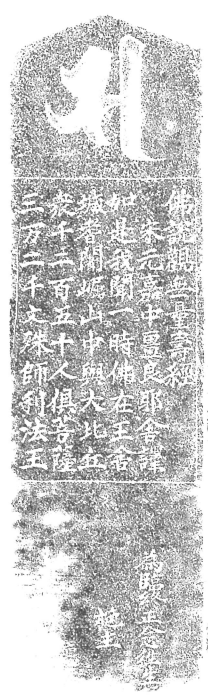 佛説觀無量壽經
宋元嘉中畺良耶舍譯
如是我聞一時佛在王舍
城耆闍崛山中與大比丘
衆千二百五十人俱菩薩
三万二千文殊師利法王
施主